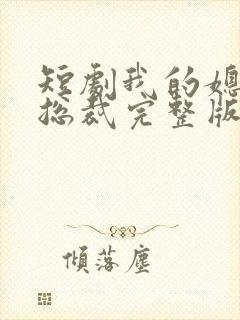 短劇我的媳
总裁完整版
傾落塵